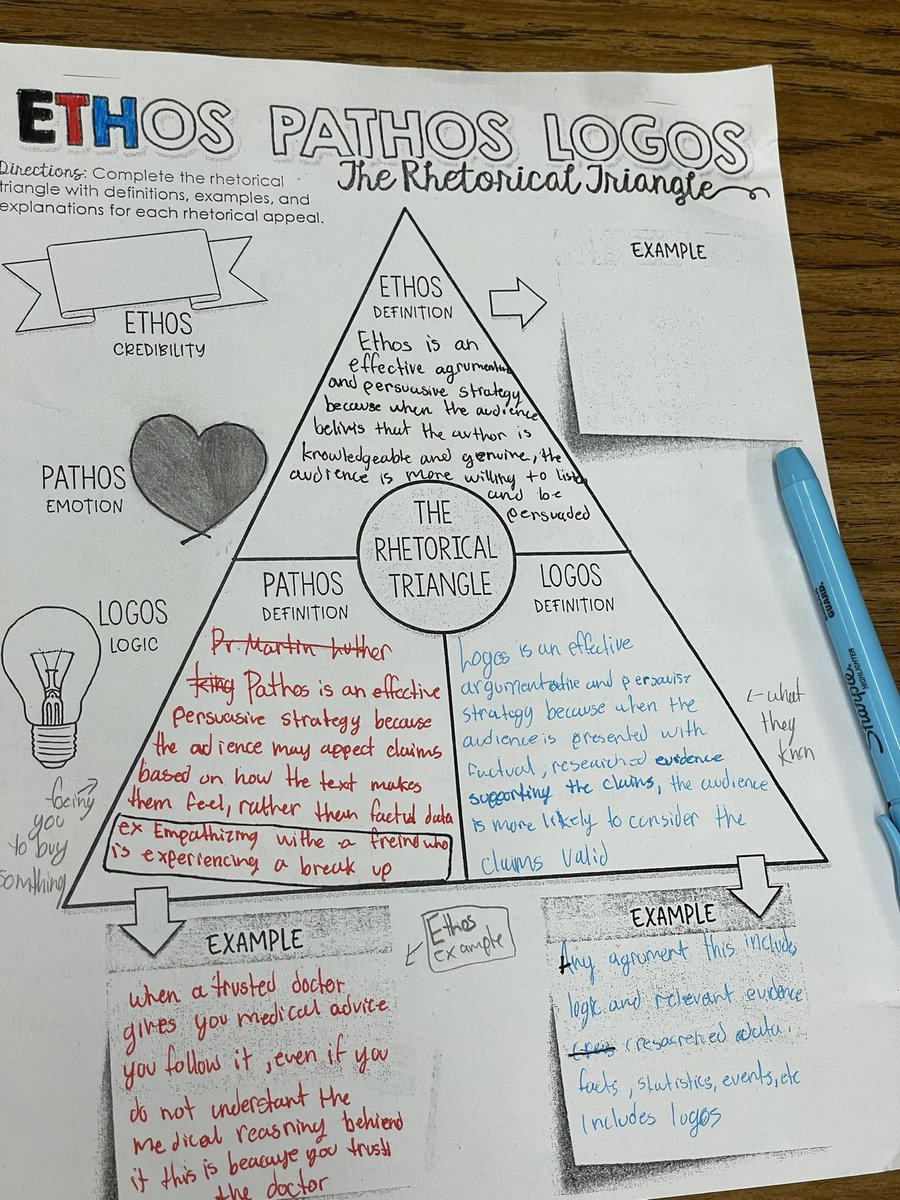 ETHOS PATHOS LOGOS
The Rhetorical Triangle
Directions: Complete the rhetorical
triangle with definitions, examples, and
explanations for each rhetorical appeal.
ETHOS
CREDIBILITY
PATHOS
EMOTION
LOGOS
LOGIC
ETHOS
DEFINITION
Ethos is an
effective
and persuasive strategy
because when the audience
belivis that the author is
knowledgeable and genuine, the
audience is more willing to listen
and be
persuaded
EXAMPLE
THE
RHETORICAL
TRIANGLE
PATHOS
DEFINITION
Dr. Martin Luther
King Pathos is an effective
persuasive strategy because
the adience may appect claims
based on how the text makes
them feel, rather then factul data
ex Empathizing withe a freind who
is experiencing a break up
LOGOS
DEFINITION
Logos is an effective
and
strategy because when the
audience is presented with
factual, researched evidence
supporting the claims, the audience
is more likely to consider the
claims valid
← what
they
you
to buy
somthing
EXAMPLE
when a trusted doctor
gives you medical advice
you follow it, even if you
do not understant the
medical reasning behiend
it this is beacaye you trust
the doctor
Ethos
example
EXAMPLE
Any agrument this includes
logic and relevant evidence
data.
facts, statistics, events, etc
includes logos
Sharpie
HIGHLIGHTER
GUARD